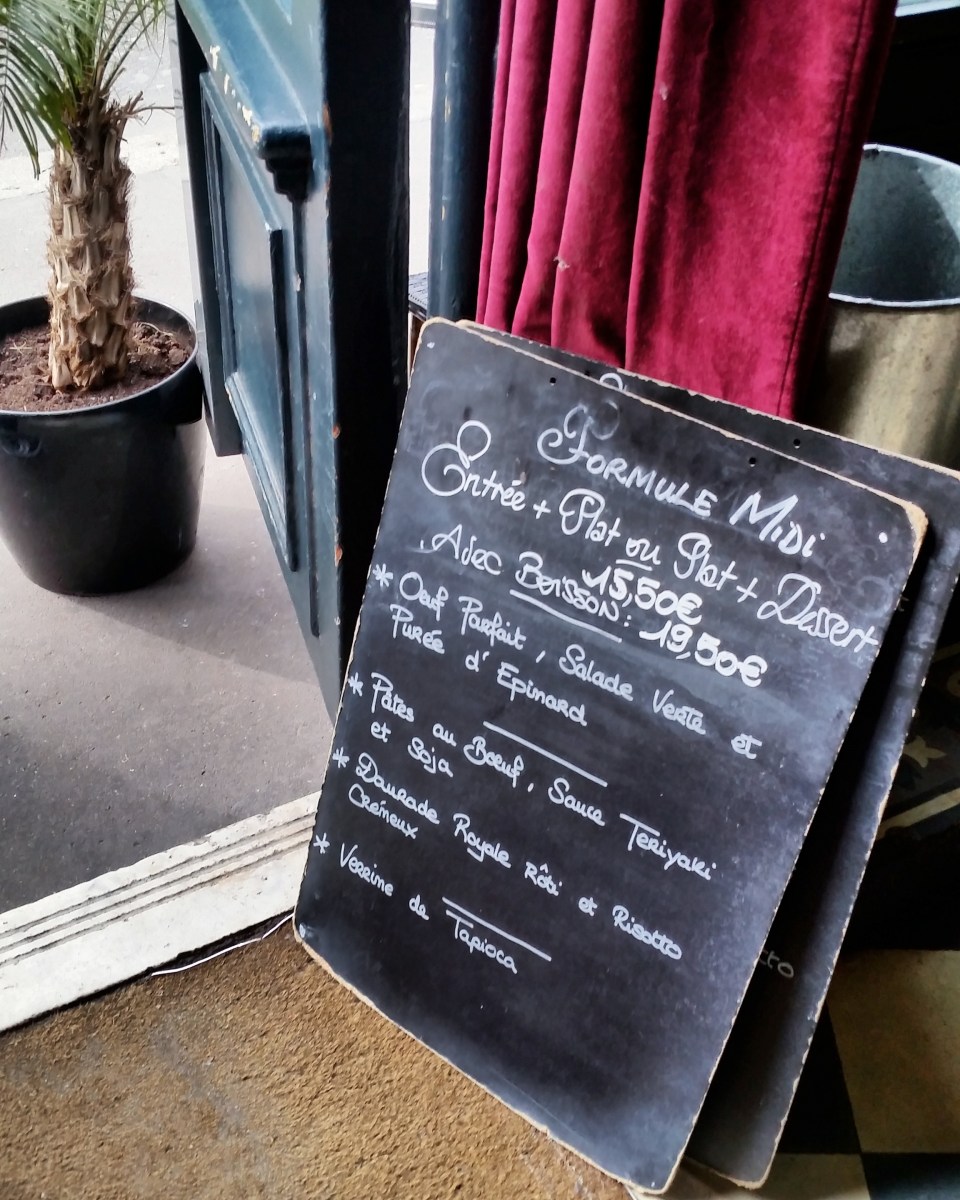 FORMULE MiDi
Entrée + Plat ou Plat + Dessert
15,50€
Avec BOISSON : 19,50€
* Oeuf Parfait, Salade Verte et
Purée d'Epinard
* Pâtes au Boeuf, Sauce Teriyaki
et Soja
* Daurade Royale rôti et Risotto
Crémeux
* Verrine de Tapioca
tto